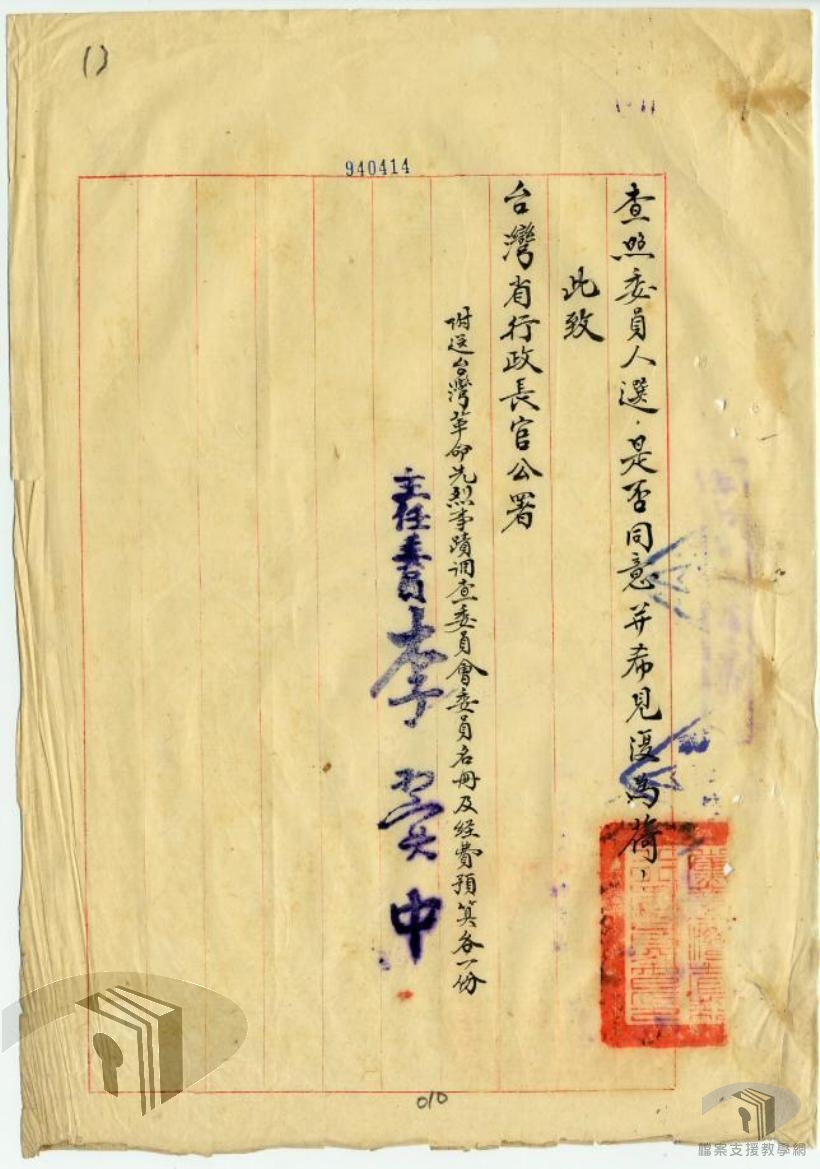 940414
查照委員人選，是否同意并希見復為荷，
此致
台灣省行政長官公署
附送台灣革命先烈事蹟調查委員會委員名冊及经費預算各一份
主任委員李翼中
010
檔案支援教學網